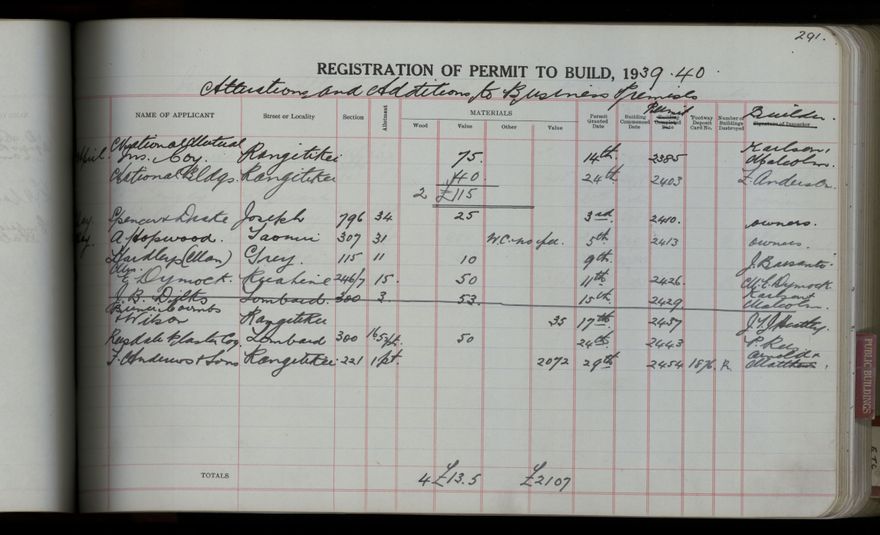 291.
REGISTRATION OF PERMIT TO BUILD, 1939.40.
Alterations and Additions to Business Premises
NAME OF APPLICANT Street or Locality Section Allotment MATERIALS Wood Value Other Value Permit Granted Date Building Commenced Date Permit Building Completed Date Footway Deposit Card No. Number of Buildings Destroyed Builder. Signature of Inspector
National Mutual Karlson,
Ins. Coy. Rangitikei 75. 14th 2385 Malcolm.
National Bldgs. Rangitikei 40. 24th 2403
2 £115
Spencer & Drake Joseph 796 34 25 3rd 2410. owners.
A Hopwood. Taonui 307 31 W.C. no fee. 5th 2413 owners.
Hardley (Man) Grey. 115 11 10 9th
Dymock. 246/7 15. 50 11th 2426. Dymock
J. B. Dilks Lombard 300 3 53. 15th 2429 Karlson & Malcolm.
Wilson Rangitikei 35 17th 2437
Lombard 300 pt. 50 24th 2443
F. Andrews & Sons Rangitikei 221 1 pt. 2072 29th 2454 1876. R. Arnold &
TOTALS 4 £13.5 £2107
PUBLIC BUILDINGS